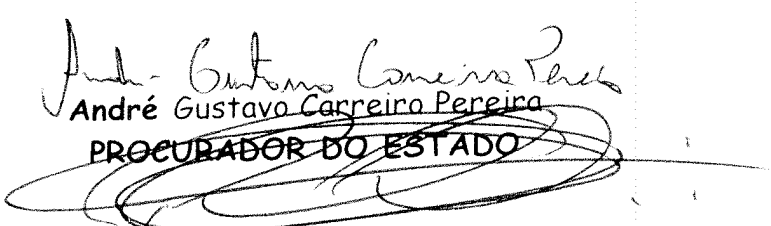 André Gustavo Carreiro Pereira
André Gustavo Carreiro Pereira
PROCURADOR DO ESTADO